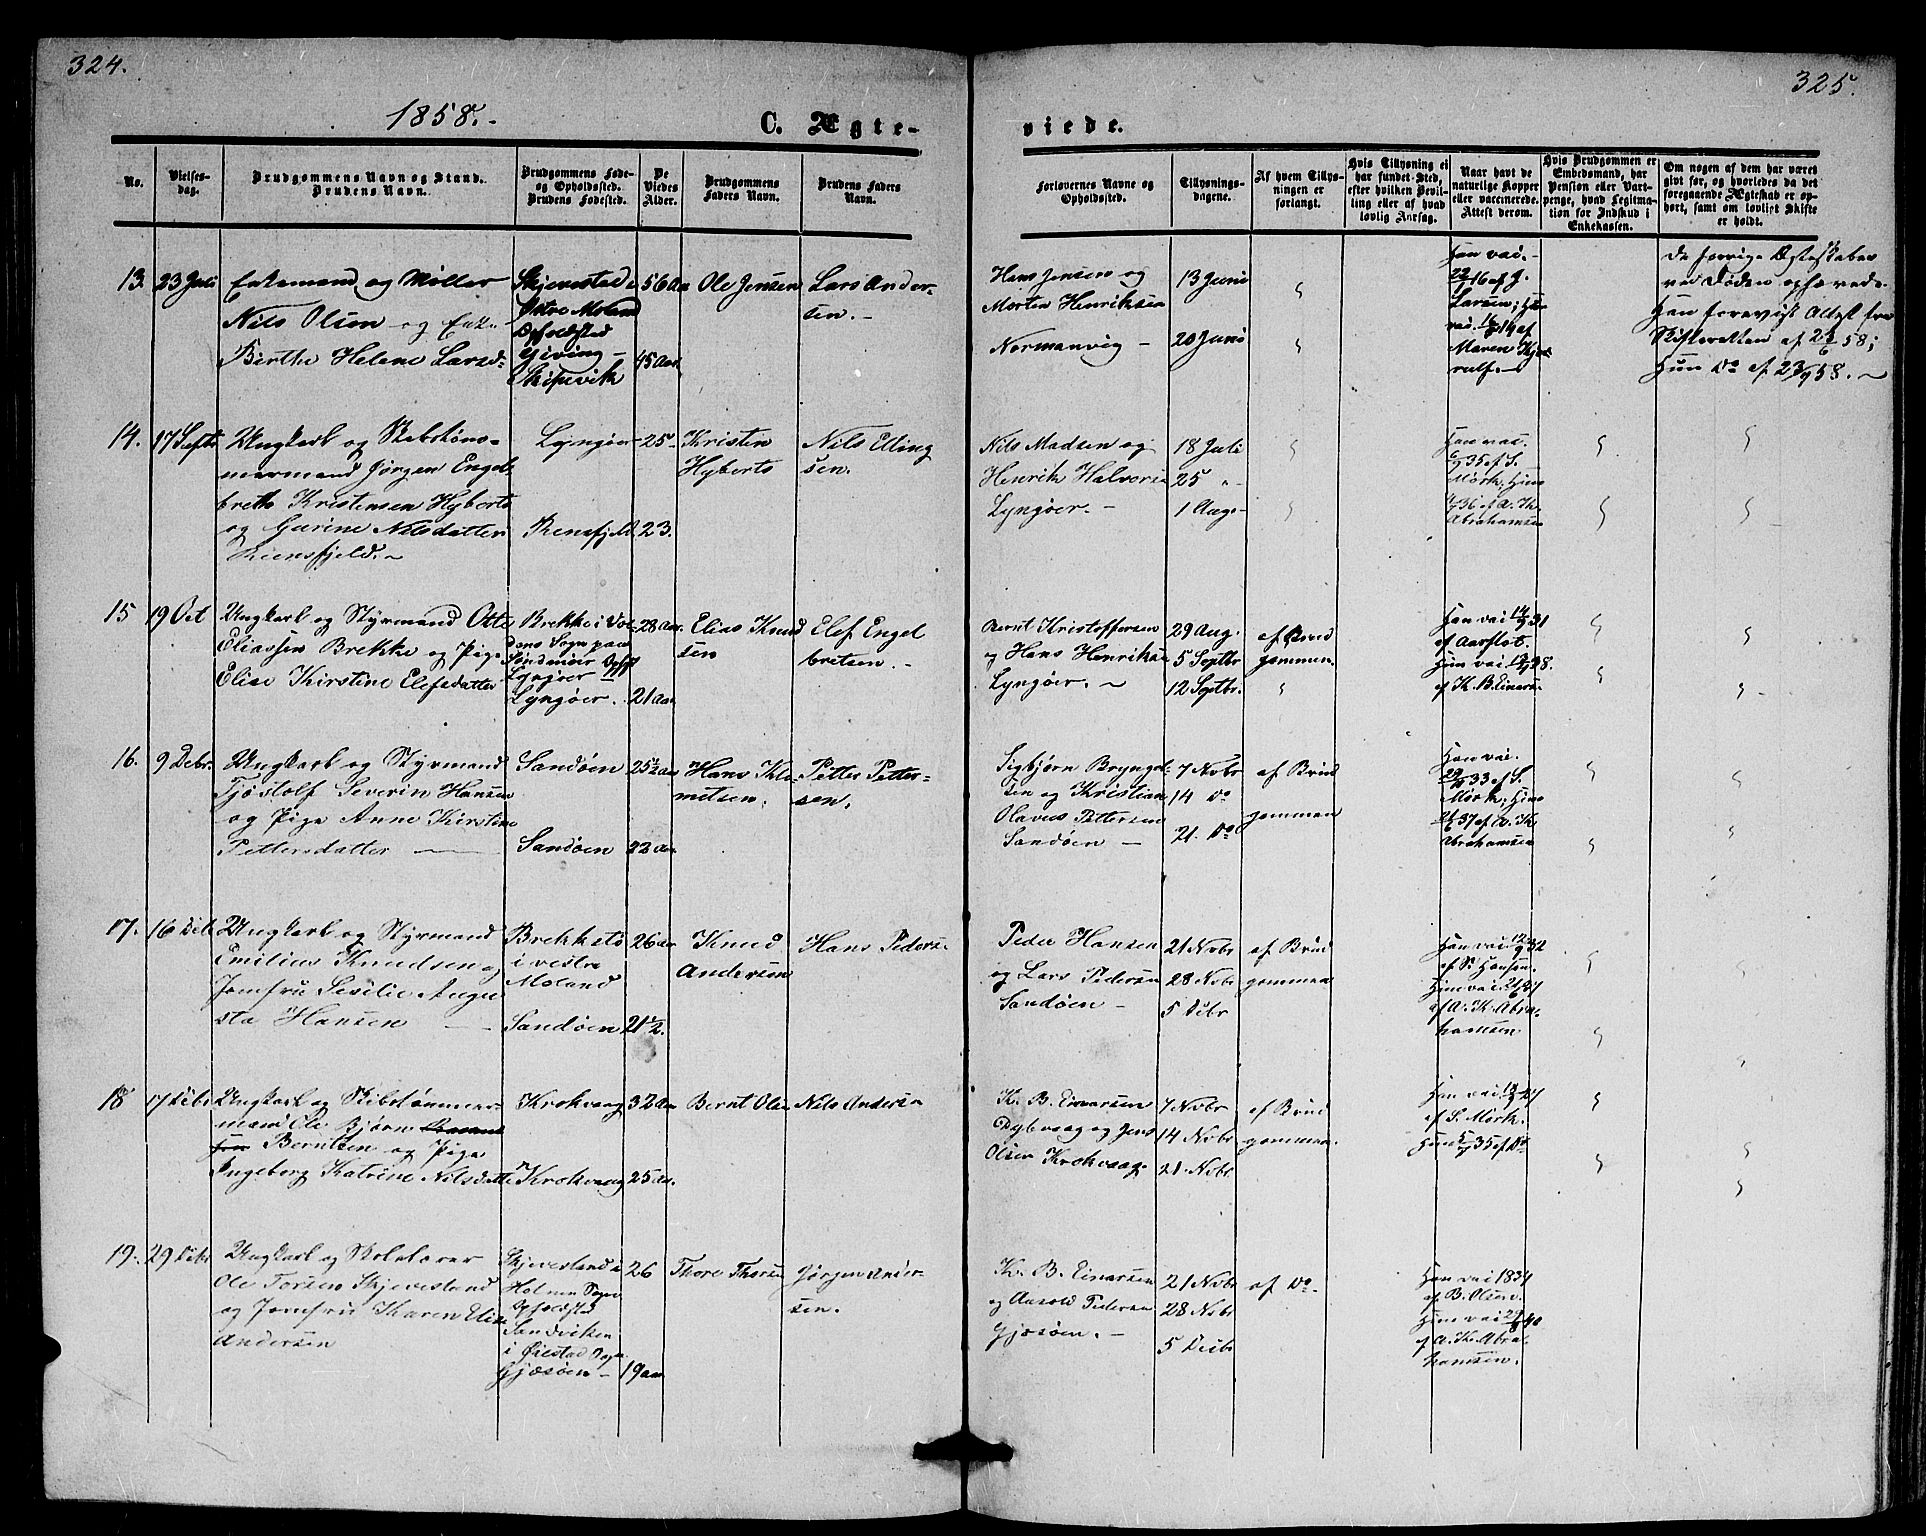 324.
1858.
C. Ægte-
No.
Vielses-
dag.
Brudgommens Navn og Stand.
Brudens Navn.
Brudgommens Føde-
og Opholdssted.
Brudens Fødested.
De
Viedes
Alder.
Brudgommens
Faders Navn.
Brudens Faders
Navn.
13. 23 Juli
Enkemand og Møller
Nils Olsen og Enke
Birthe Helene Larsd.
Skjevestad i
Østre Moland
Opholdsted
Giving -
Skipevik
56 Aar
45 Aar.
Ole Jensen
Lars Ander-
sen. -
14. 17 Septr
Ungkarl og Skibstøm-
mermand Jørgen Engel-
breth Kristensen Hyberts
og Gurine Nilsdatter
Riensfjeld. ~
Lyngøer
Rensfjeld.
25
23.
Kristen
Hyberts
Nils Elling
sen.
15 19 Oct
Ungkarl og Styrmand Otte
Eliassen Brekke og Pige
Elise Kirstine Elefsdatter
Brekke i Vol-
dens Sogn paa
Søndmør Opst
Lyngøer
Lyngøer.
28 Aar.
21 Aar.
Elias Knud
sen
Elef Engel
bretsen. -
16. 9 Debr.
Ungkarl og Styrmand
Tjøstolf Severin Hansen
og Pige Anne Kirstine
Pettersdatter
Sandøen
Sandøen
25½ Aar
22 Aar.
Hans Kle-
metsen.
Petter Petter-
sen.
17. 16 Debr
Ungkarl og Styrmand
Emilius Knudsen og
Jomfru Sesilie Augu
sta Hansen
Brekkestø
i vestre
Moland
Sandøen
26 Aar
21½.
Knud
Andersen
Hans Pedersen
18 17 Debr
Ungkarl og Skibstømmer-
mand Ole Bjørn
Berntsen og Pige
Ingeborg Katrine Nilsdatter
Krokvaag
Krokvaag
32 Aar
25 Aar.
Bernt Olsen
Nils Andersen
19. 29 Debr
Ungkarl og Skolelærer
Ole Torsen Skjevesland
og Jomfru Karen Elise
Andersen
Skjevesland i
Holmen Sogn
Opholdsted
Sandviken
i Øiestad Sogn
Gjæsøen -
26
19 aar
Thore Thorsen
Jørgen Ander-
sen.
325.
viede.
Forlovernes Navne og
Opholdssted.
Tillysnings-
dagene.
Af hvem Tillys-
ningen er
forlangt.
Hvis Tillysning ei
har fundet Sted,
efter hvilken Bevil-
ling eller af hvad
lovlig Aarsag.
Naar havt de
naturlige Kopper
eller vaccinerede.
Attest derom.
Hvis Brudgommen er
Embedsmand, har
Pension eller Vart-
penge, hvad Legitima-
tion for Indskud i
Enkekassen.
Om nogen af dem har været
gift før, og hvorledes da det
foregaaende Ægteskab er op-
hørt, samt om lovligt Skifte
er holdt.
Hans Jensen og
Morten Henriksen
Normanvig -
13 Juni
20 Juni
Han vac.
22/9 16 af J.
Larsen; Hun
vac. 14 af
Maren Kjer
rulf. -
De forrige Ægteskaber
ved Døden ophævede.
Han forevist Attest fra
Skifteretten af 23/6 58;
Hun Do af 23/9 58. ~
Nils Madsen og
Henrik Halvorsen
Lyngøer. -
18 Juli
25 "
1 Aug.
Han vac.
35 af S.
Mørk, Hun
36 af A. K.
Abrahamsen
Bernt Kristoffersen
og Hans Henriksen
Lyngøer. ~
29 Aug.
5 Septbr
12 Septbr.
af Brud
gommen.
Han vac. 31
af Aarflot.
Hun vac. 38.
af K. B. Einarsen
Sigbjørn Bryngel-
sen og Kristian
Olavus Pettersen
Sandøen -
7 Nobr
14 Do
21. Do
af Brud
gommen
Han vac.
33 af S.
Mørk, Hun
37 af A. K.
Abrahamsen
Peder Hansen
og Lars Pedersen
Sandøen -
21 Nobr
28 Nobr
5 Debr
af Brud
gommen
Han vac. 32
af S. Hansen.
Hun vac. 37
af A. K. Abra-
hamsen
K. B. Einarsen
Dybvaag og Jens
Olsen Krokvaag.
7 Nobr
14 Nobr
21. Nobr
af Brud
gommen.
Han vac. 27
af S. Mørk.
Hun 35 af Do
K. B. Einarsen
og Aasold Pedersen
Gjæsøen. -
21 Nobr
28 Nobr
5 Debr
af Do
Han vac 1834
af B. Olsen.
Hun vac 40
af A. K. Abra-
hamsen.